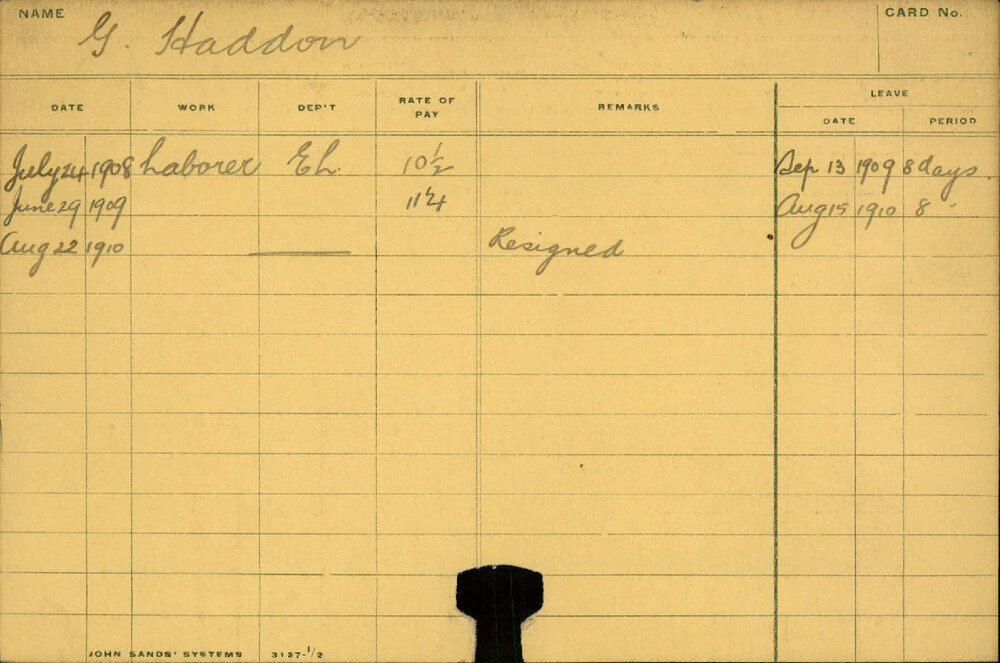 NAME G. Haddon CARD No.
DATE WORK DEP'T RATE OF PAY REMARKS LEAVE
DATE PERIOD
July 24 1908 Laborer EL. 10½ Sep 13 1909 8 days.
June 29 1909 11¼ Aug 15 1910 8 "
Aug 22 1910 —— Resigned
JOHN SANDS' SYSTEMS 3127-1/2